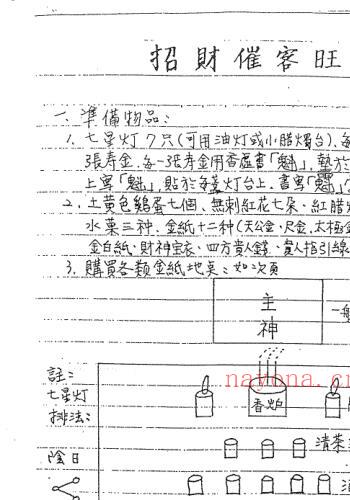 招財催客旺
一、準備物品：
1. 七星灯7只(可用油灯或小腊燭台)、每
3張寿金、每一張寿金用香虛書「魁」、墊於
上寫「魁」貼於每盞灯台上。書寫「魁」
2. 土黄色鷄蛋七個、無刺紅花七朵、紅腊
水菓三种、金紙十二种(天公金、尺金、太極金
金白紙、財神宝衣、四方貴人錢、貴人指引線
3. 購買各類金紙地桌：如次頁
主神
一般
註：
七星灯
排法：
香炉
nayona.cn
清茶
陰日